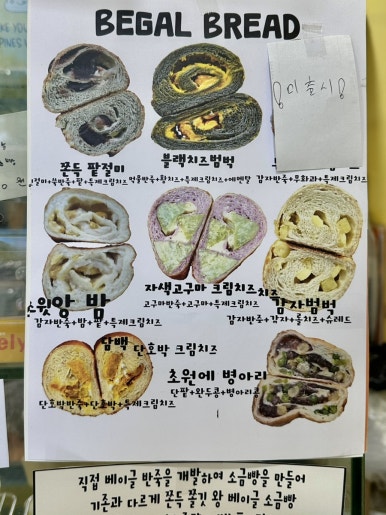 BEGAL BREAD
미출시
쫀득 팥절미
블랙치즈범벅
먹물반죽+황치즈+특제크림치즈+에멘탈
감자반죽+무화과+특제크림치즈
스윗앙 밤
감자반죽+밤+팥+특제크림치즈
자색고구마 크림치즈
고구마반죽+고구마+특제크림치즈
감자범벅
감자반죽+감자+롤치즈+슈레드
담백 단호박 크림치즈
단호박반죽+단호박+특제크림치즈
초원에 병아리
단팥+완두콩+병아리콩
직접 베이글 반죽을 개발하여 소금빵을 만들어
기존과 다르게 쫀득 쫄깃 왕 베이글 소금빵